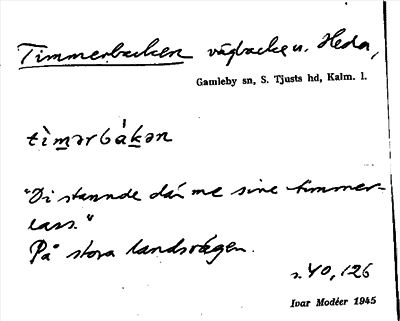 Timmerbacken vägbacke u. Heda,
Gamleby sn, S. Tjusts hd, Kalm. l.
tìmərbákən
"Di stannde där me sine timmer-
lass."
På stora landsvägen.
s. 40, 126
Ivar Modéer 1945